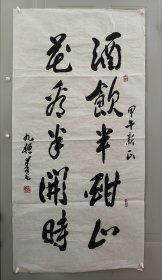 酒飲半酣
花看半開時
甲午新正